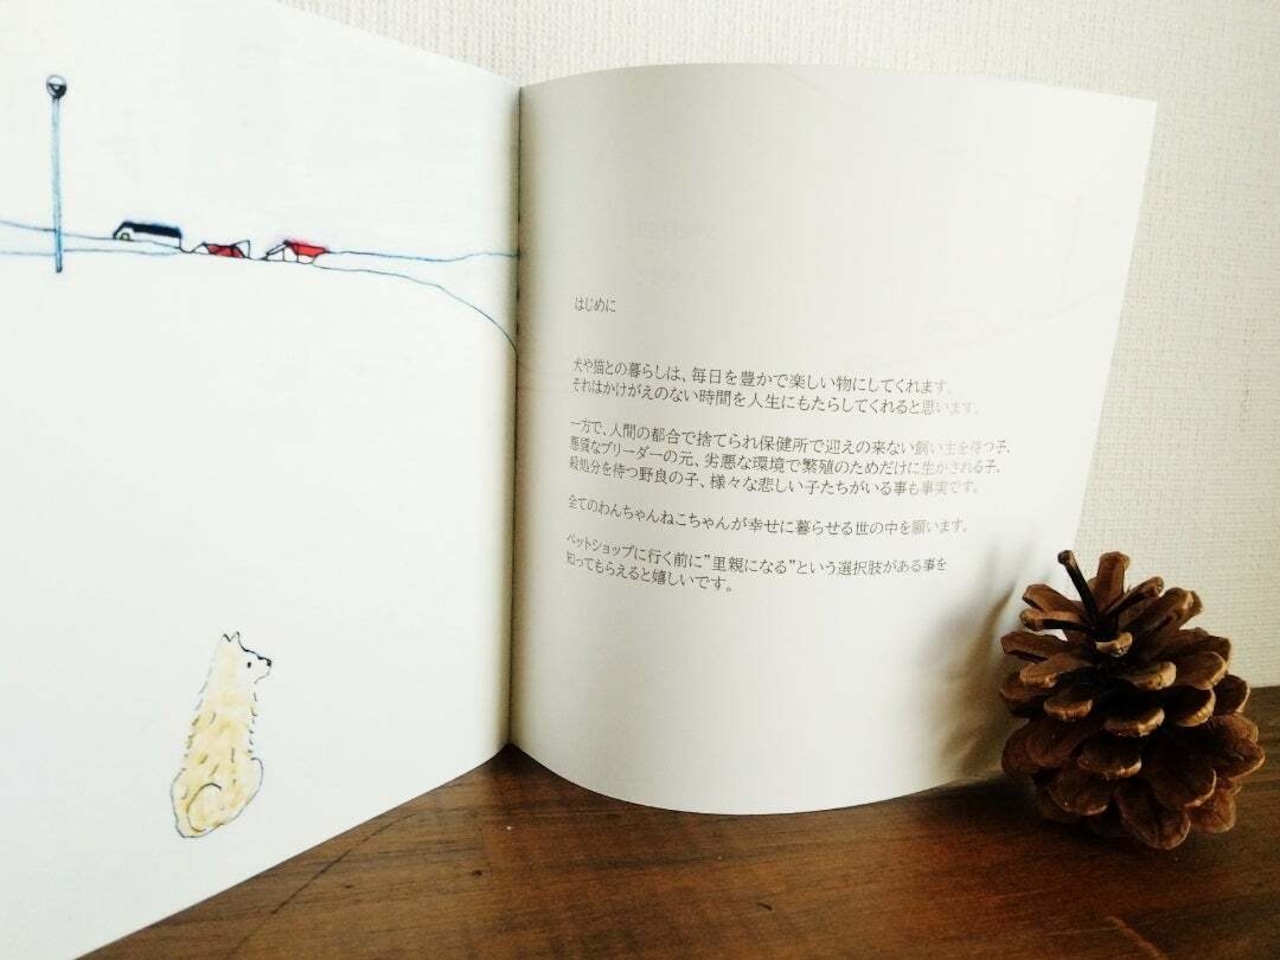 はじめに
犬や猫との暮らしは、毎日を豊かで楽しい物にしてくれます。
それはかけがえのない時間を人生にもたらしてくれると思います。
一方で、人間の都合で捨てられ保健所で迎えの来ない飼い主を待つ子、
悪質なブリーダーの元、劣悪な環境で繁殖のためだけに生かされる子、
殺処分を待つ野良の子、様々な悲しい子たちがいる事も事実です。
全てのわんちゃんねこちゃんが幸せに暮らせる世の中を願います。
ペットショップに行く前に”里親になる”という選択肢がある事を
知ってもらえると嬉しいです。